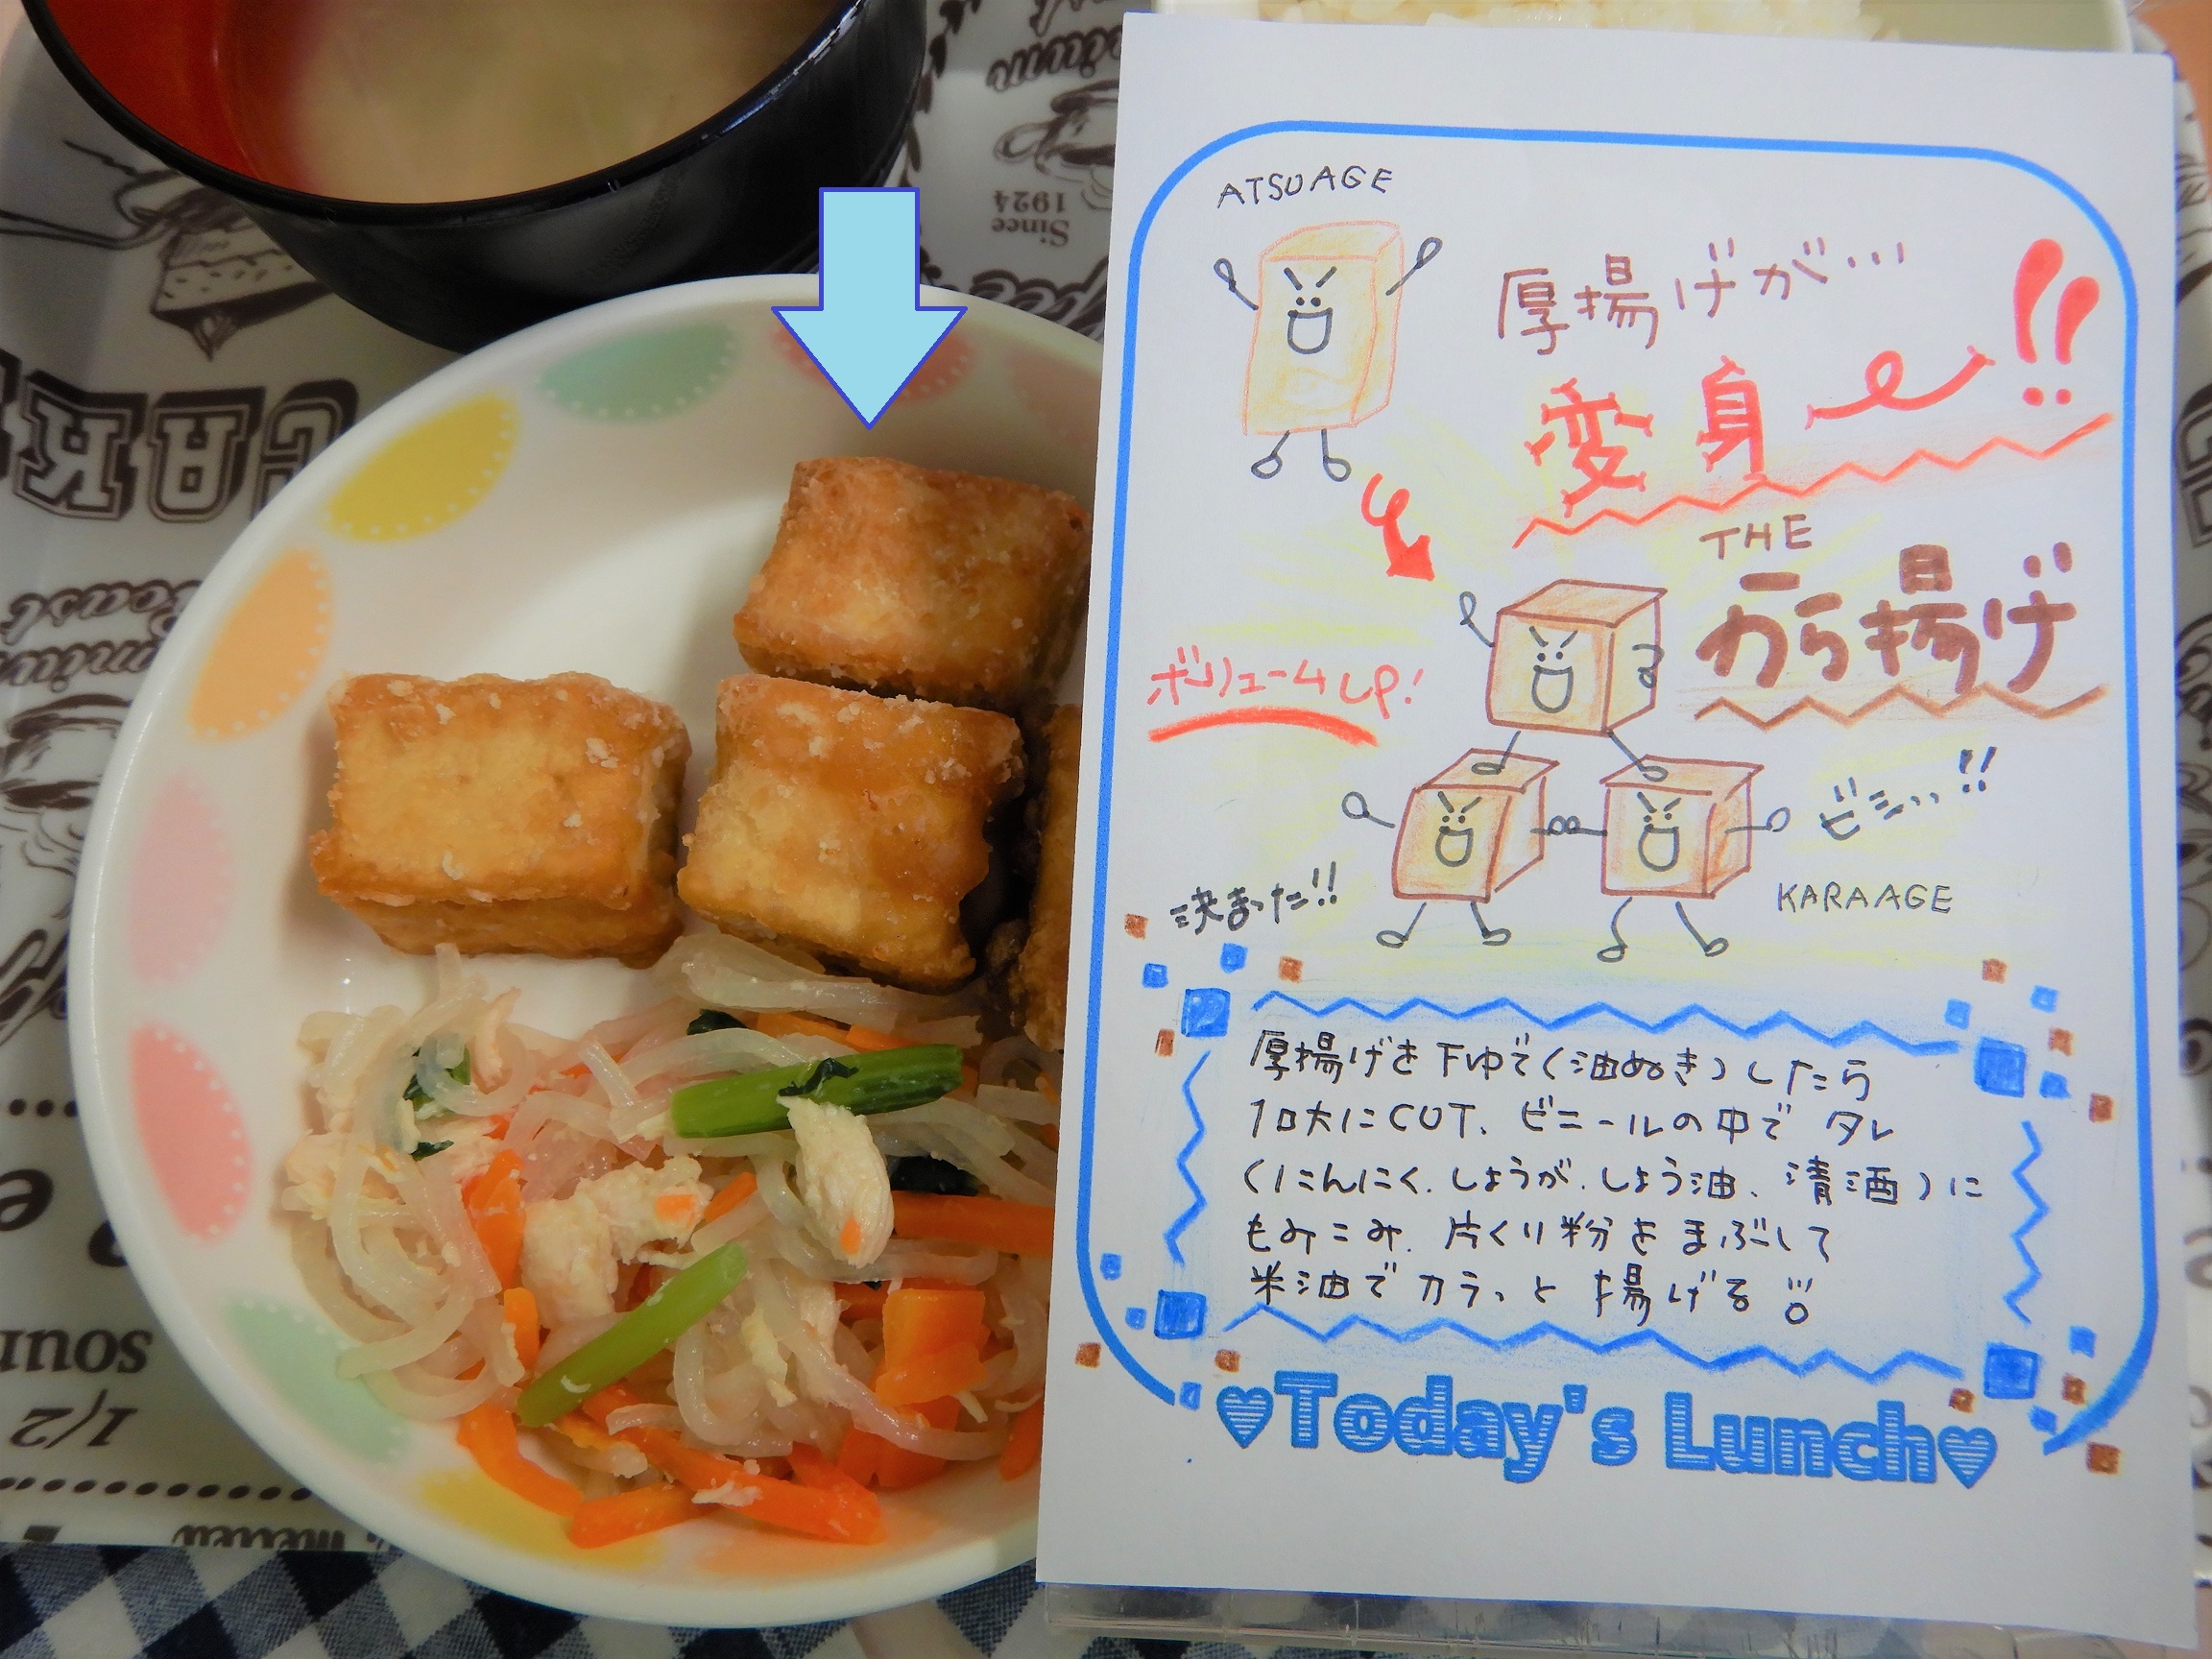 ATSUAGE
厚揚げが…
変身〜!!
THE
から揚げ
ボリュームUP!
ビシッ!!
決まった!!
KARAAGE
厚揚げを下ゆで(油ぬき)したら
1口大にCUT、ビニールの中でタレ
(にんにく.しょうが.しょう油、清酒)に
もみこみ.片くり粉をまぶして
米油でカラッと揚げる
♥Today's Lunch♥
Since
1924
CAK
1/2